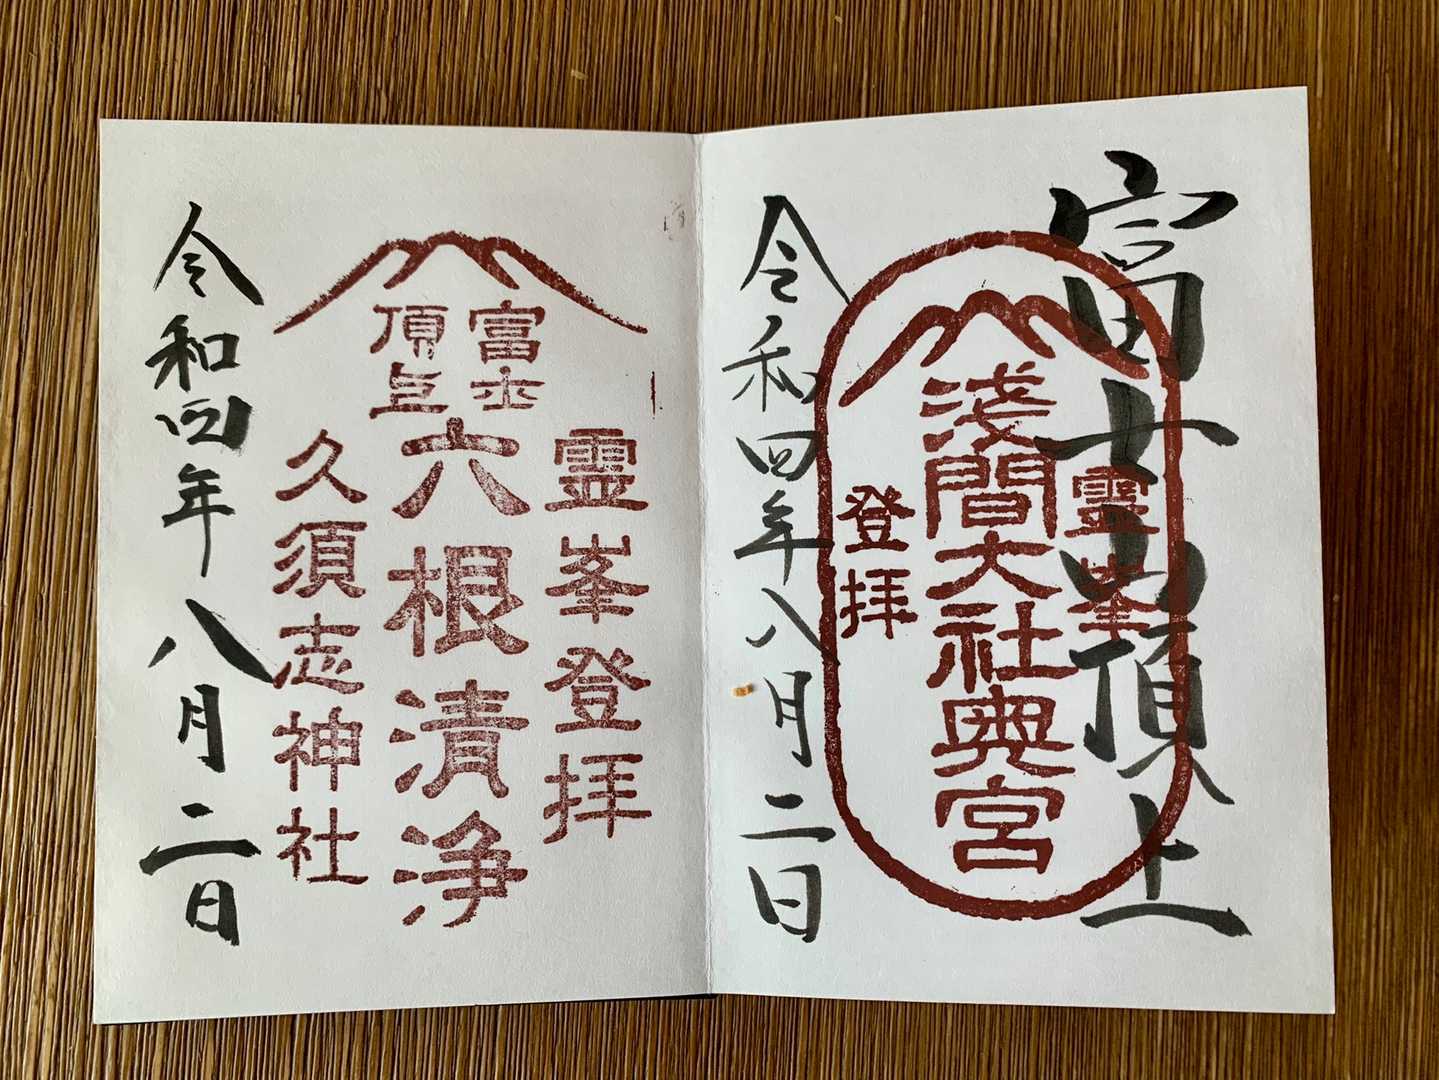 富士山頂上
霊峯
浅間大社奥宮
登拝
令和四年八月二日
霊峯登拝
富士
頂上
六根清浄
久須志神社
令和四年八月二日